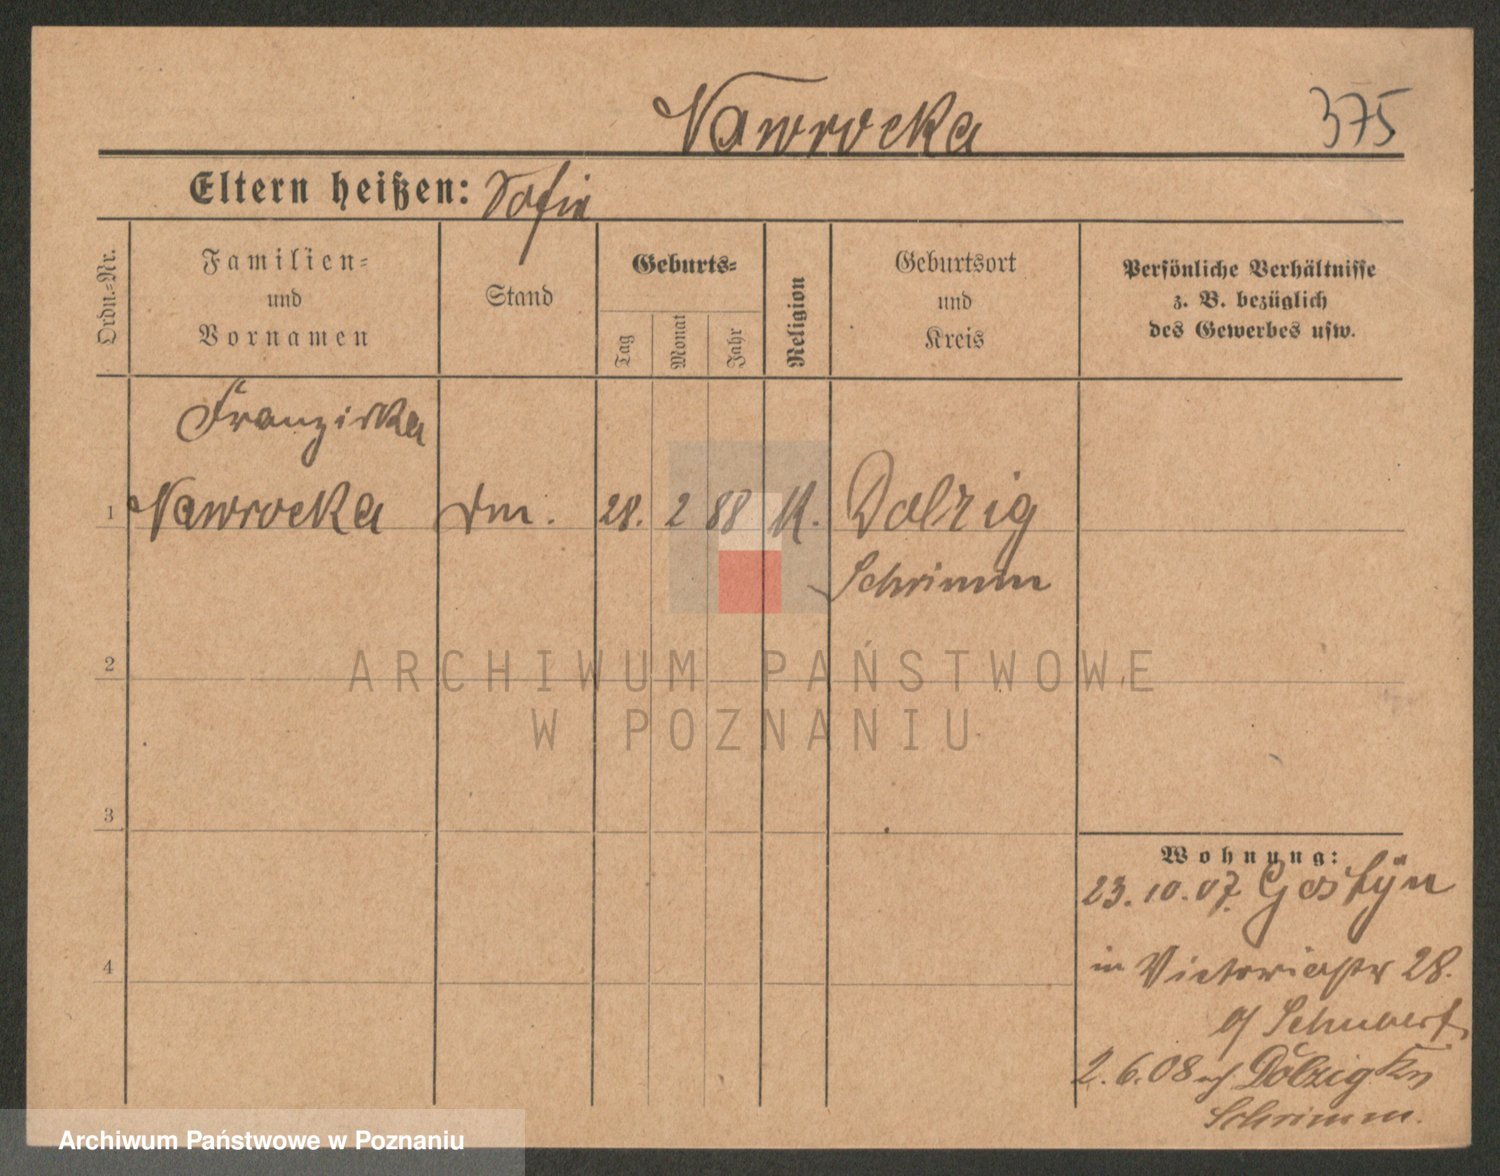 Nawrocka 375
Eltern heißen: Sofie
Ordn.-Nr.
Familien-
und
Vornamen
Stand
Geburts-
Tag
Monat
Jahr
Religion
Geburtsort
und
Kreis
Persönliche Verhältnisse
z. B. bezüglich
des Gewerbes usw.
Franziska
1 Nawrocka 28. 2 88 K. Dolzig
Schrimm
2
ARCHIWUM PAŃSTWOWE
W POZNANIU
3
Wohnung:
23.10.07. Gostyn
4
in Victoriastr 28.
b/ Schubert
2.6.08 Dolzig Kr
Schrimm.
Archiwum Państwowe w Poznaniu